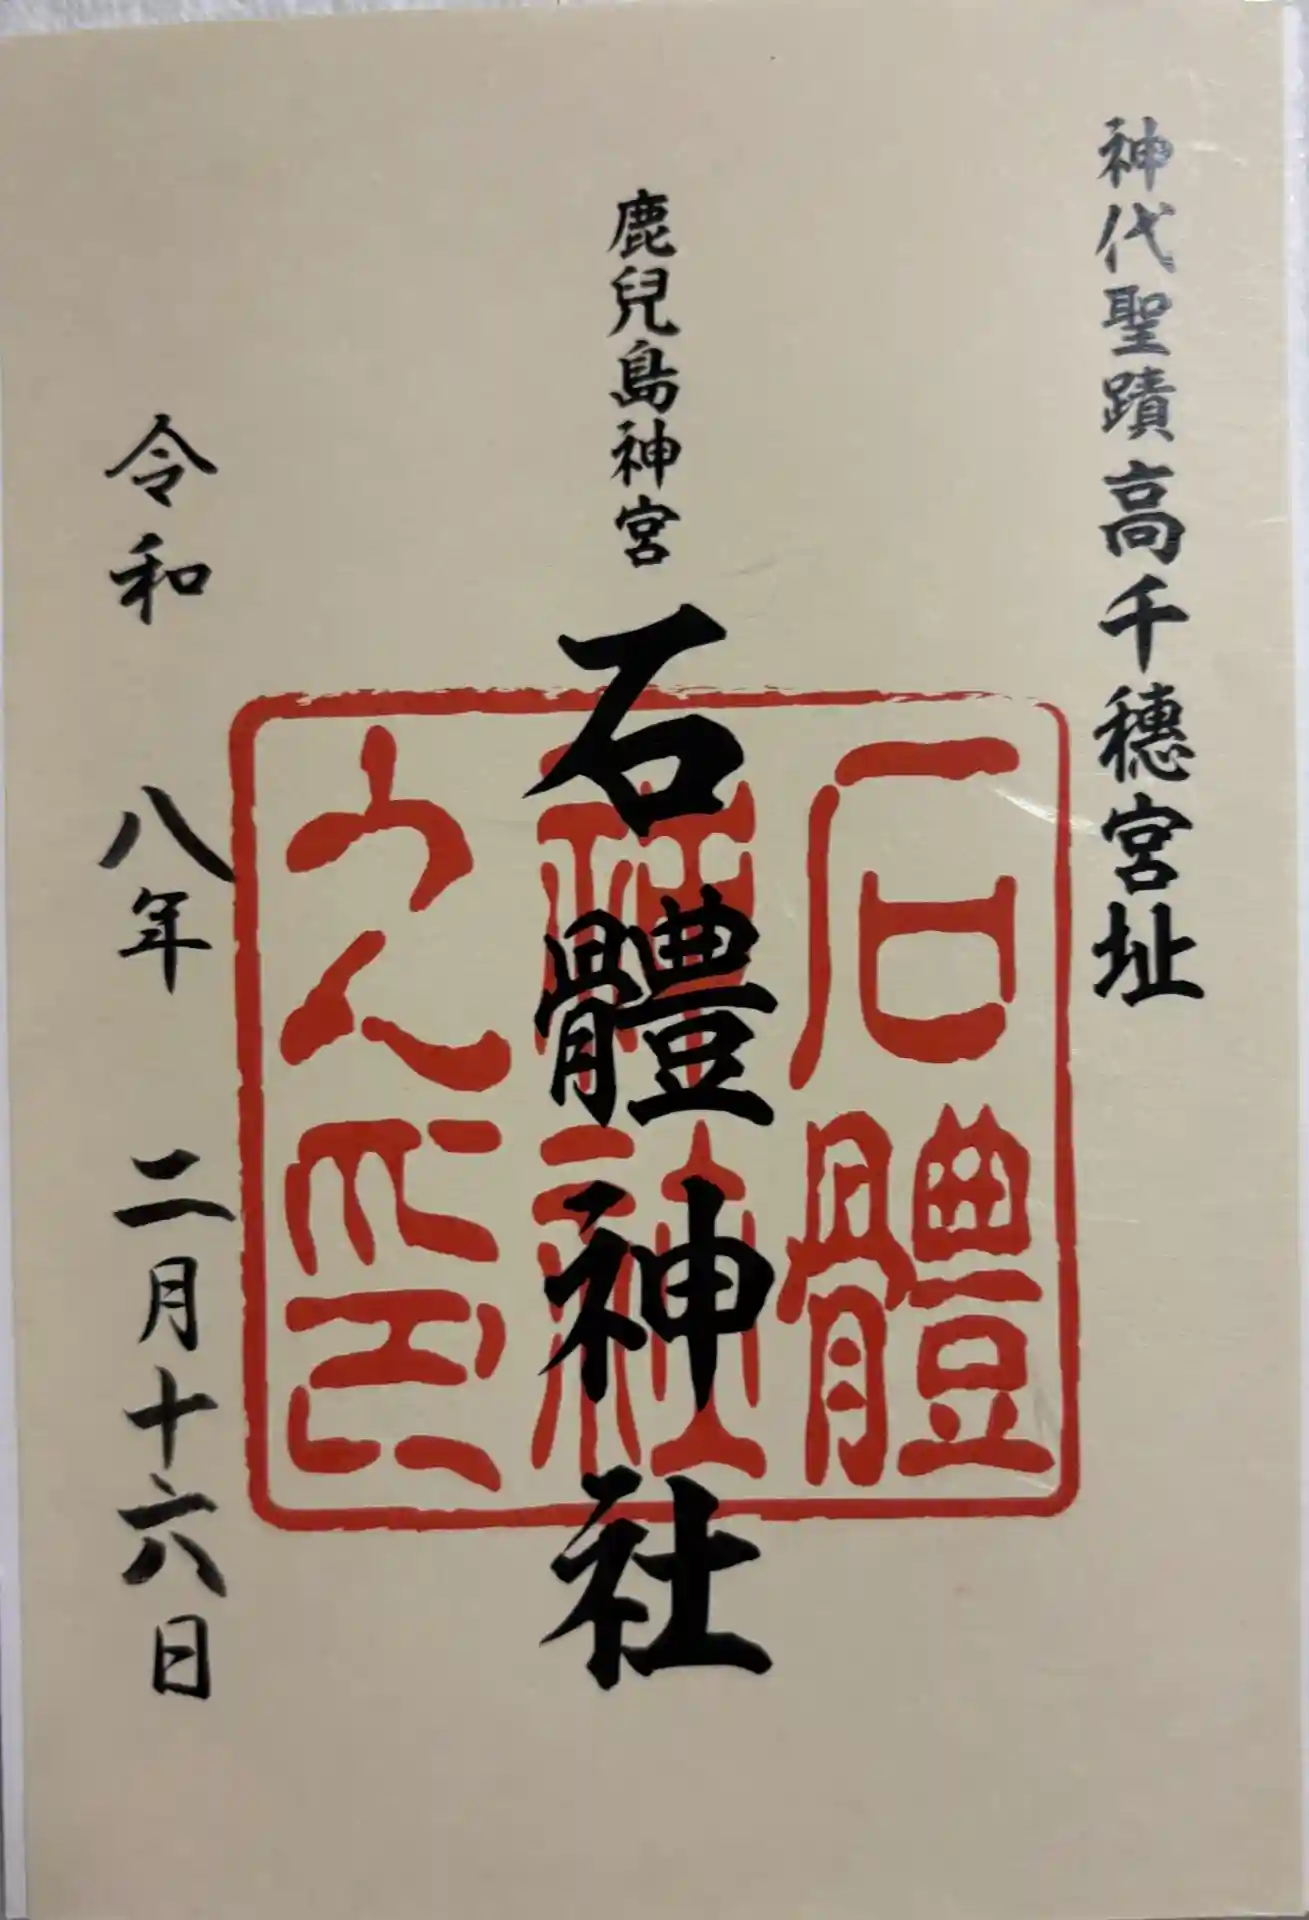 神代聖蹟高千穗宮址
鹿兒島神宮
石體神社
令和八年二月十六日
石體
神社
之印